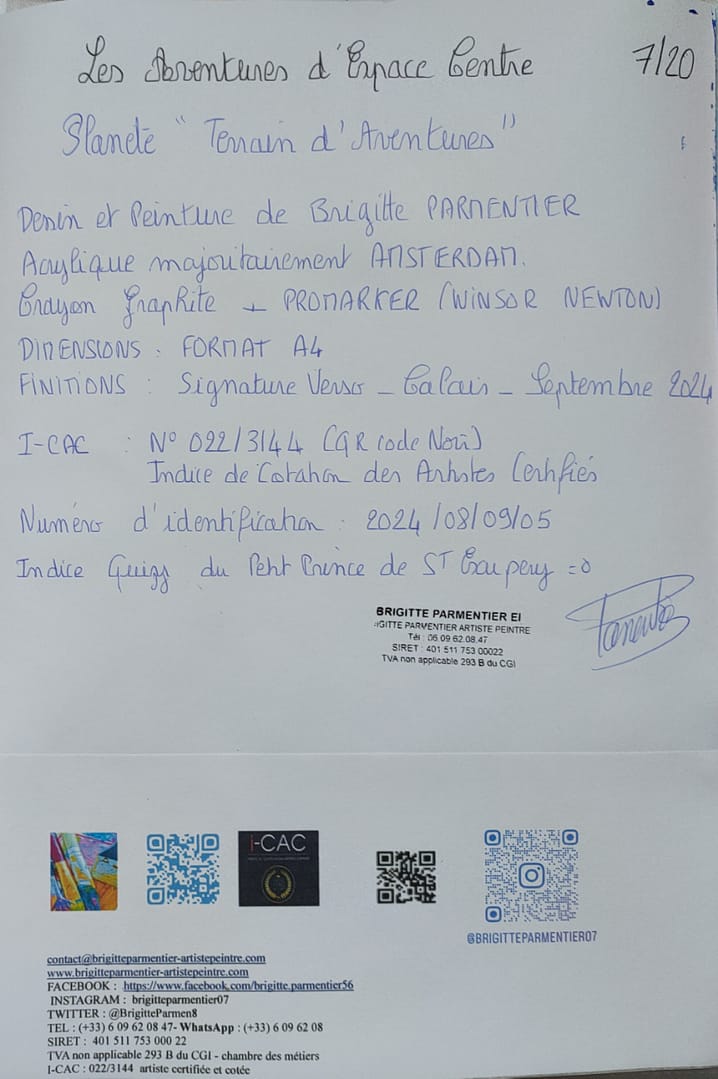 Les Aventures d'Espace Centre
7/20
Planète " Terrain d'Aventures"
Dessin et Peinture de Brigitte PARMENTIER
Acrylique majoritairement AMSTERDAM.
Crayon Graphite + PROMARKER (WINSOR NEWTON)
DIMENSIONS : FORMAT A4
FINITIONS : Signature Verso - Calais - Septembre 2024
I-CAC : N° 022/3144 (QR code Noir)
Indice de Cotation des Artistes Certifiés
Numéro d'identification : 2024/08/09/05
Indice Quizz du Petit Prince de ST Exupery = 0
BRIGITTE PARMENTIER EI
IGITTE PARMENTIER ARTISTE PEINTRE
Tél : 06 09 62.08.47
SIRET : 401 511 753 00022
TVA non applicable 293 B du CGI
I-CAC
@BRIGITTEPARMENTIER07
contact@brigitteparmentier-artistepeintre.com
www.brigitteparmentier-artistepeintre.com
FACEBOOK : https://www.facebook.com/brigitte.parmentier56
INSTAGRAM : brigitteparmentier07
TWITTER : @BrigitteParmen8
TEL : (+33) 6 09 62 08 47- WhatsApp : (+33) 6 09 62 08
SIRET : 401 511 753 000 22
TVA non applicable 293 B du CGI - chambre des métiers
I-CAC : 022/3144 artiste certifiée et cotée